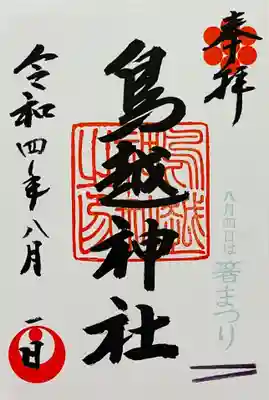 奉拝
八月四日は
箸まつり
鳥越神社
令和四年八月
一日